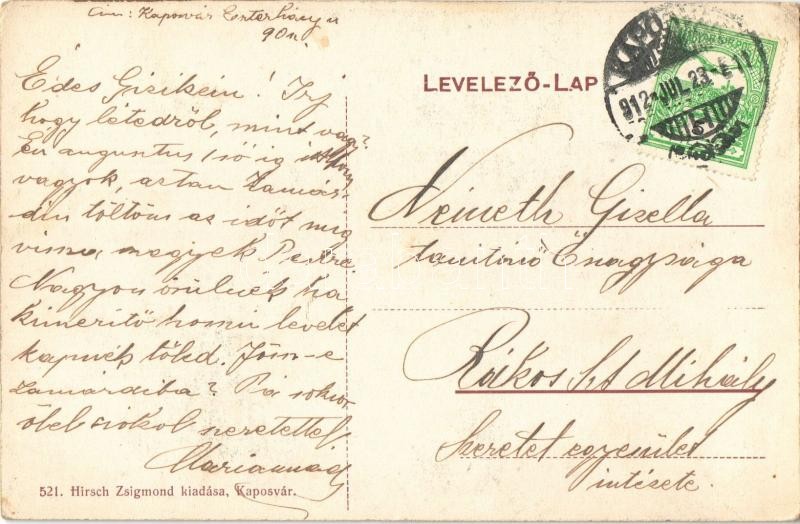 Cim: Kaposvár Eszterházy u
90 n.
Édes Gizikém! Írj
hogy létedről, mint vagy?
Én augusztus 1ső ig itthon
vagyok, aztan Zamár-
din töltöm az időt míg
vissza megyek Pestre.
Nagyon örülnék ha
kimerítő hosszu levelet
kapnék tőled. Jösz-e
Zamárdiba? Pá sokszor
ölel csókol szeretettel
521. Hirsch Zsigmond kiadása, Kaposvár.
LEVELEZŐ-LAP
KAPOSVÁR
912 JUL. 23
Németh Gizella
tanitónő Őnagysága
Rákos Szt Mihály
Szeretet egyesület
intézete.